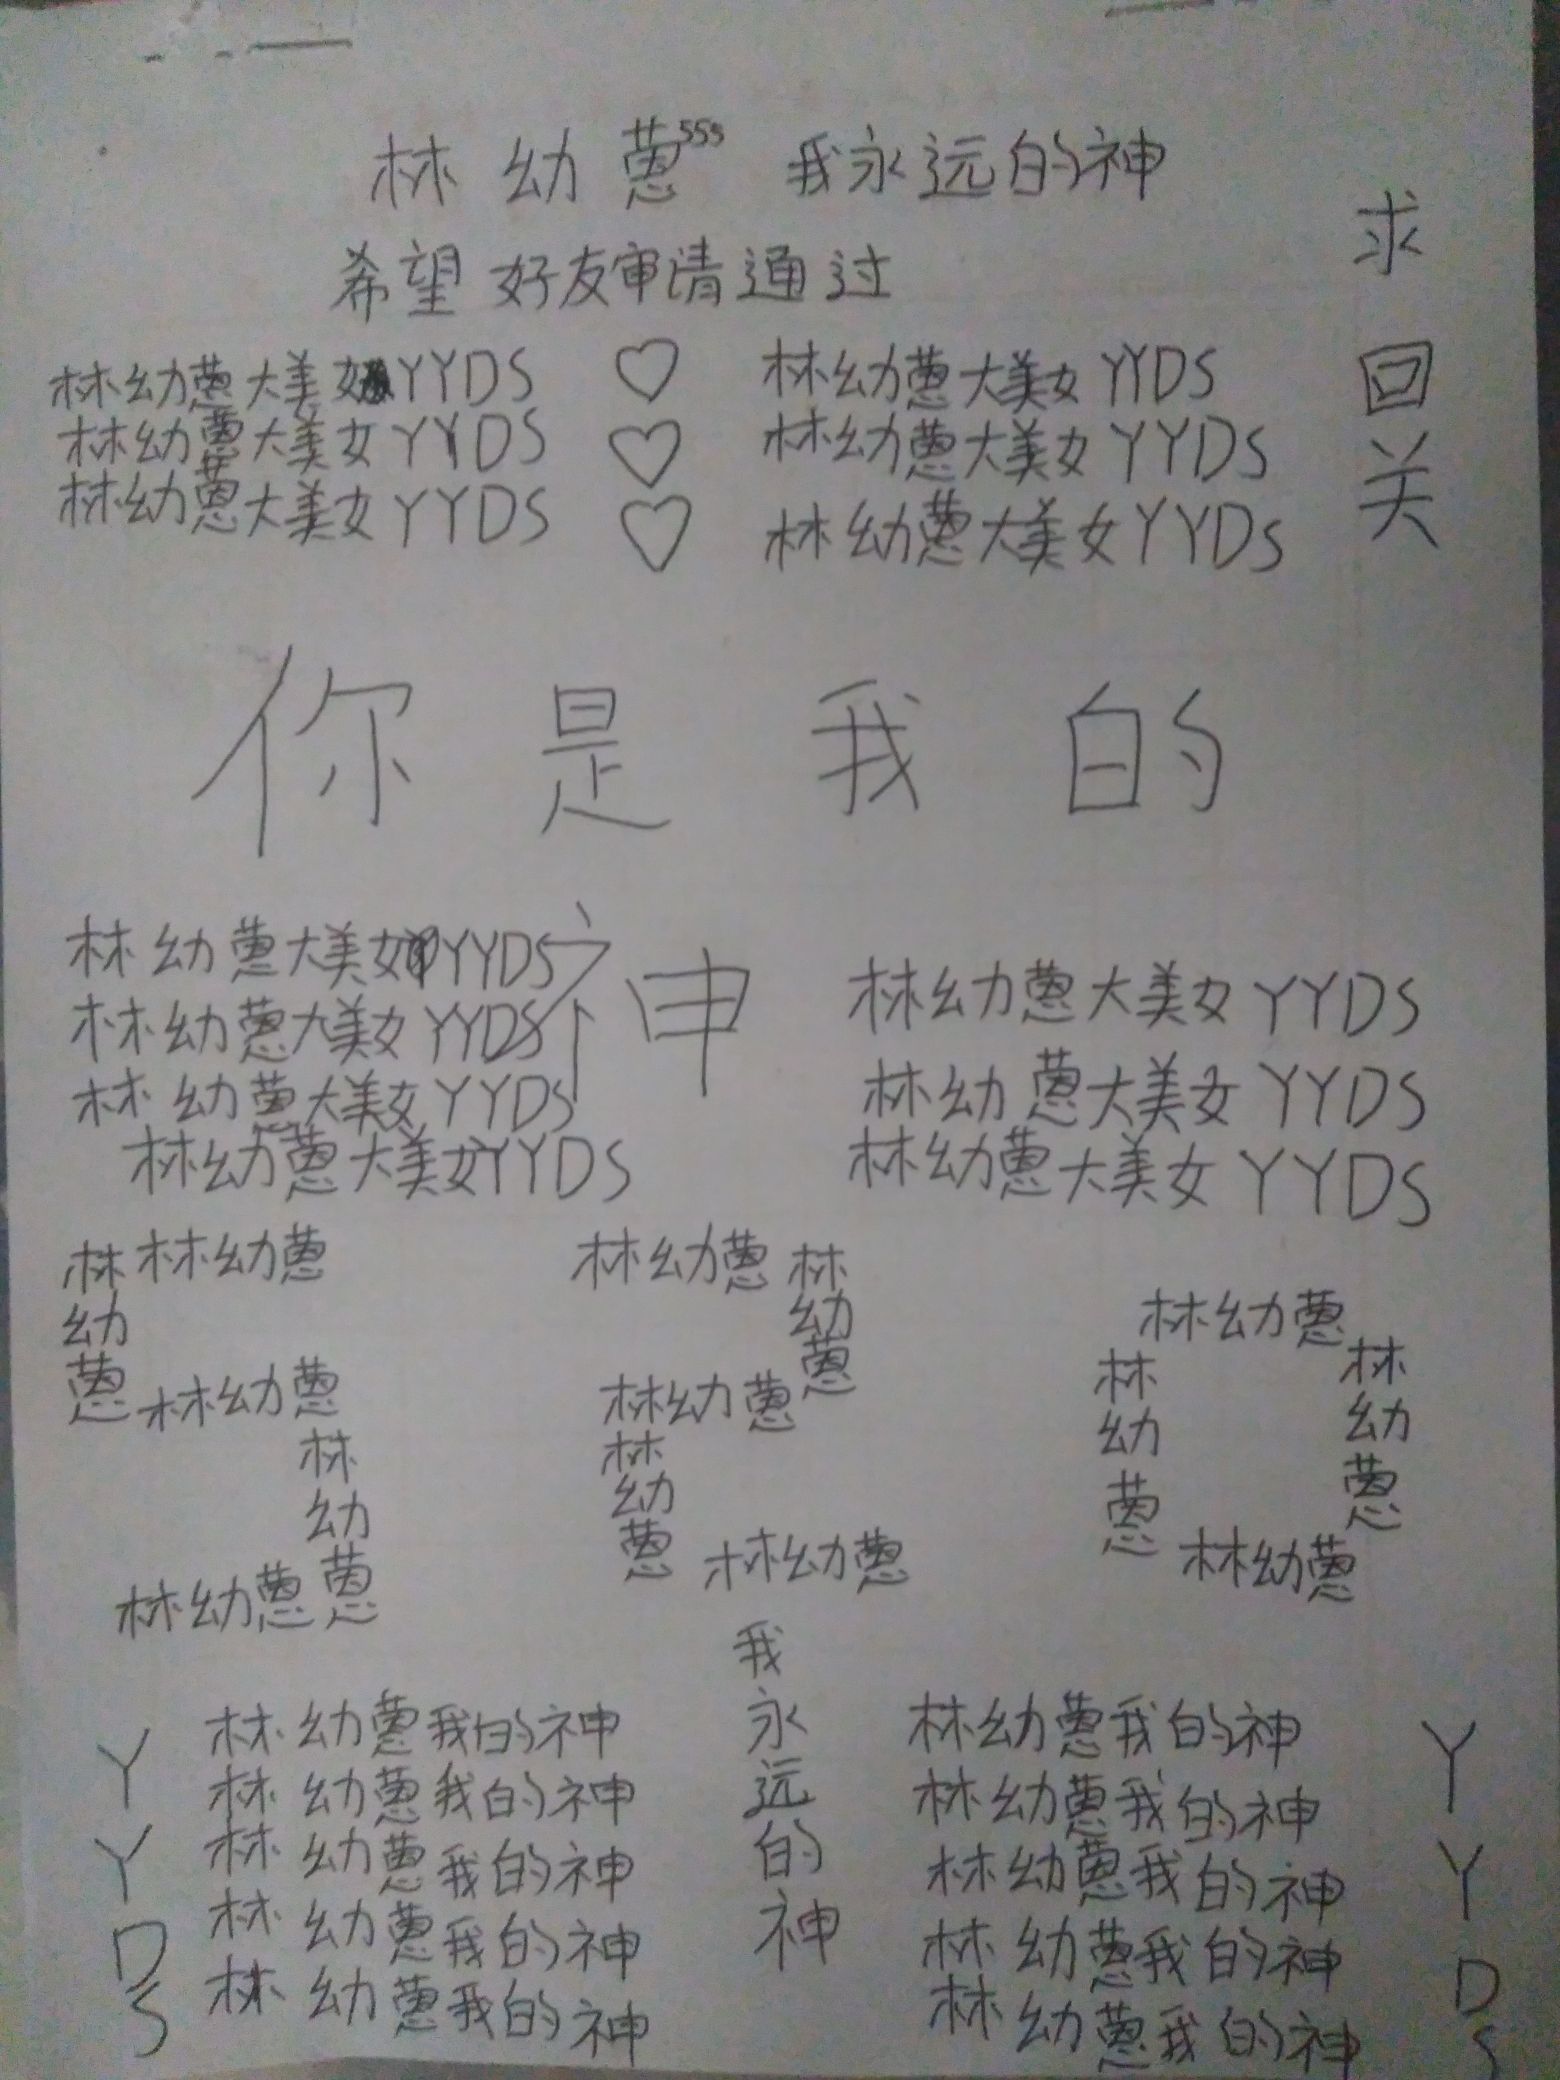 林幼蒽555 我永远的神
希望好友审请通过
求回关
林幼蒽大美女YYDS ♡ 林幼蒽大美女YYDS
林幼蒽大美女YYDS ♡ 林幼蒽大美女YYDS
林幼蒽大美女YYDS ♡ 林幼蒽大美女YYDS
你是我的
神
林幼蒽大美女YYDS 林幼蒽大美女YYDS
林幼蒽大美女YYDS 林幼蒽大美女YYDS
林幼蒽大美女YYDS 林幼蒽大美女YYDS
林幼蒽大美女YYDS
林幼蒽
林幼蒽
林幼蒽
林幼蒽
林幼蒽
林幼蒽
林幼蒽
林幼蒽
林幼蒽
林幼蒽
林幼蒽
林幼蒽
林幼蒽
林幼蒽
YYDS
林幼蒽我的神
林幼蒽我的神
林幼蒽我的神
林幼蒽我的神
林幼蒽我的神
我永远的神
林幼蒽我的神
林幼蒽我的神
林幼蒽我的神
林幼蒽我的神
林幼蒽我的神
YYDS